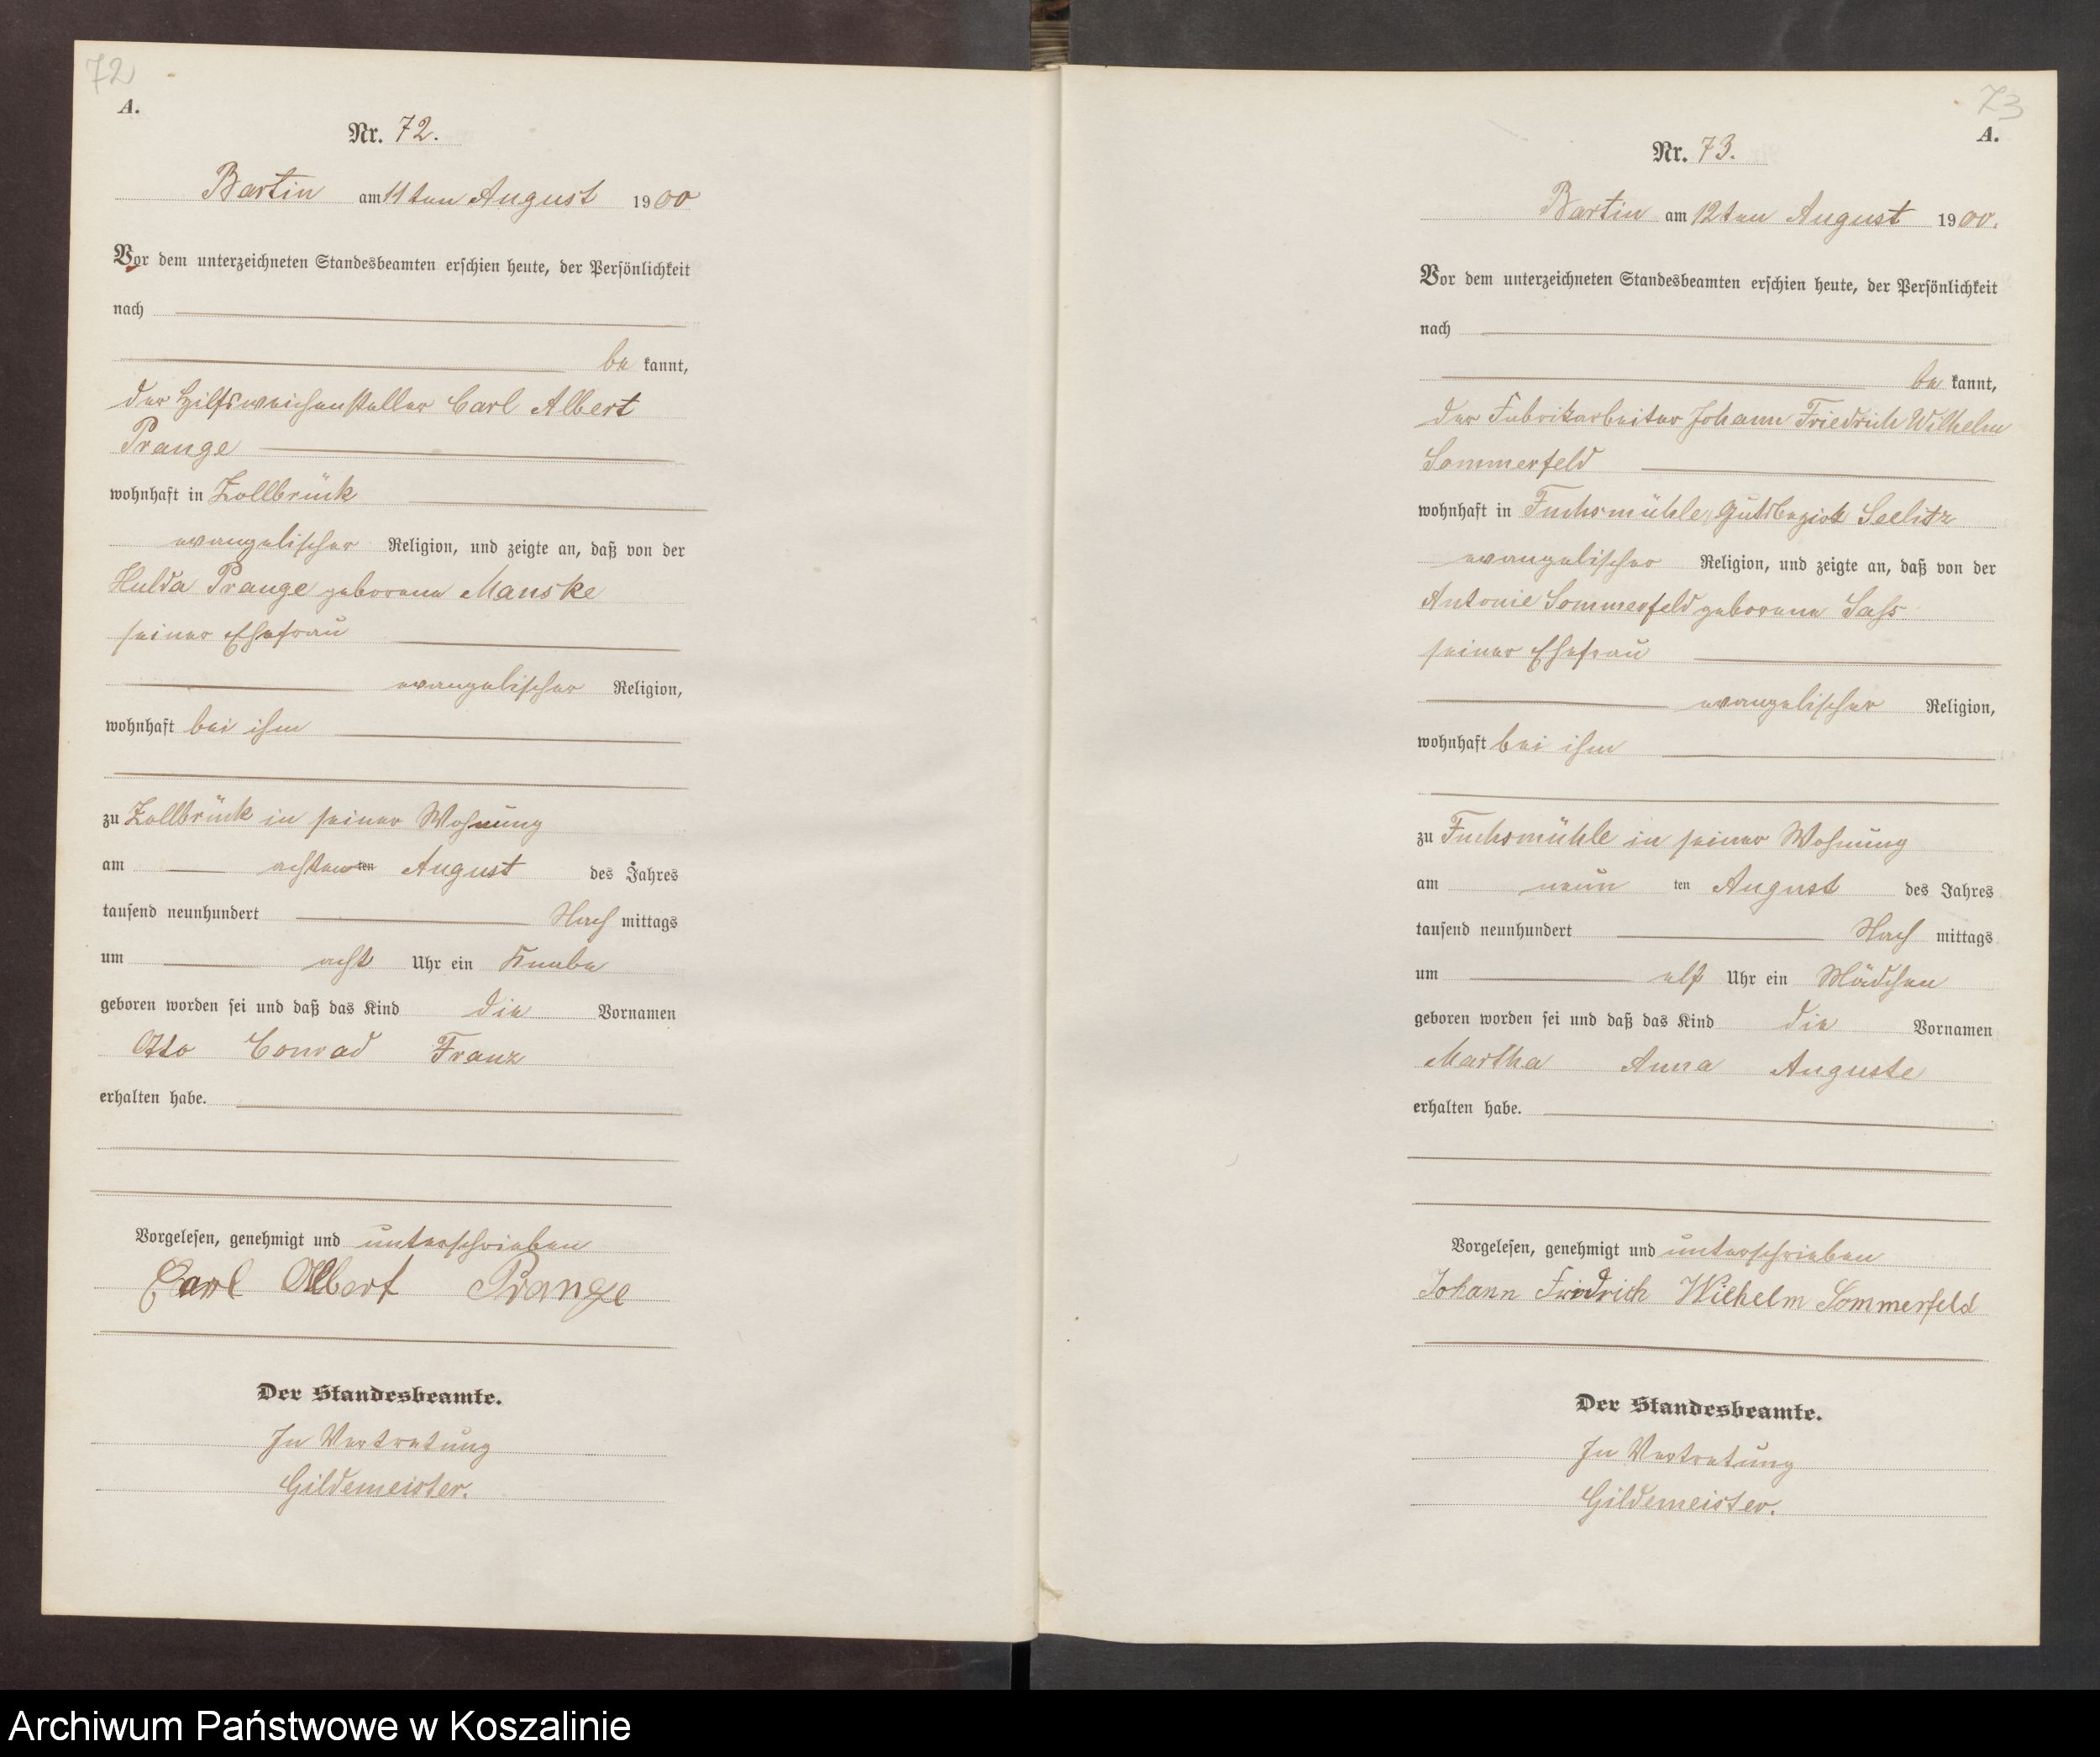 72
A.
Nr. 72.
Bartin am 11ten August 1900
Vor dem unterzeichneten Standesbeamten erschien heute, der Persönlichkeit
nach
be kannt,
der Hilfsweichensteller Carl Albert
Prange
wohnhaft in Zollbrück
evangelischer Religion, und zeigte an, daß von der
Hulda Prange geborene Manske
seiner Ehefrau
evangelischer Religion,
wohnhaft bei ihm
zu Zollbrück in seiner Wohnung
am achten ten August des Jahres
tausend neunhundert Nach mittags
um acht Uhr ein Knabe
geboren worden sei und daß das Kind die Vornamen
Otto Conrad Franz
erhalten habe.
Vorgelesen, genehmigt und unterschrieben
Carl Albert Prange
Der Standesbeamte.
In Vertretung
Gildemeister.
73
A.
Nr. 73.
Bartin am 12ten August 1900.
Vor dem unterzeichneten Standesbeamten erschien heute, der Persönlichkeit
nach
be kannt,
der Fabrikarbeiter Johann Friedrich Wilhelm
Sommerfeld
wohnhaft in Fuchsmühle, Gutsbezirk Seelitz
evangelischer Religion, und zeigte an, daß von der
Antonie Sommerfeld geborene Sass
seiner Ehefrau
evangelischer Religion,
wohnhaft bei ihm
zu Fuchsmühle in seiner Wohnung
am neun ten August des Jahres
tausend neunhundert Nach mittags
um elf Uhr ein Mädchen
geboren worden sei und daß das Kind die Vornamen
Martha Anna Auguste
erhalten habe.
Vorgelesen, genehmigt und unterschrieben
Johann Friedrich Wilhelm Sommerfeld
Der Standesbeamte.
In Vertretung
Gildemeister.
Archiwum Państwowe w Koszalinie